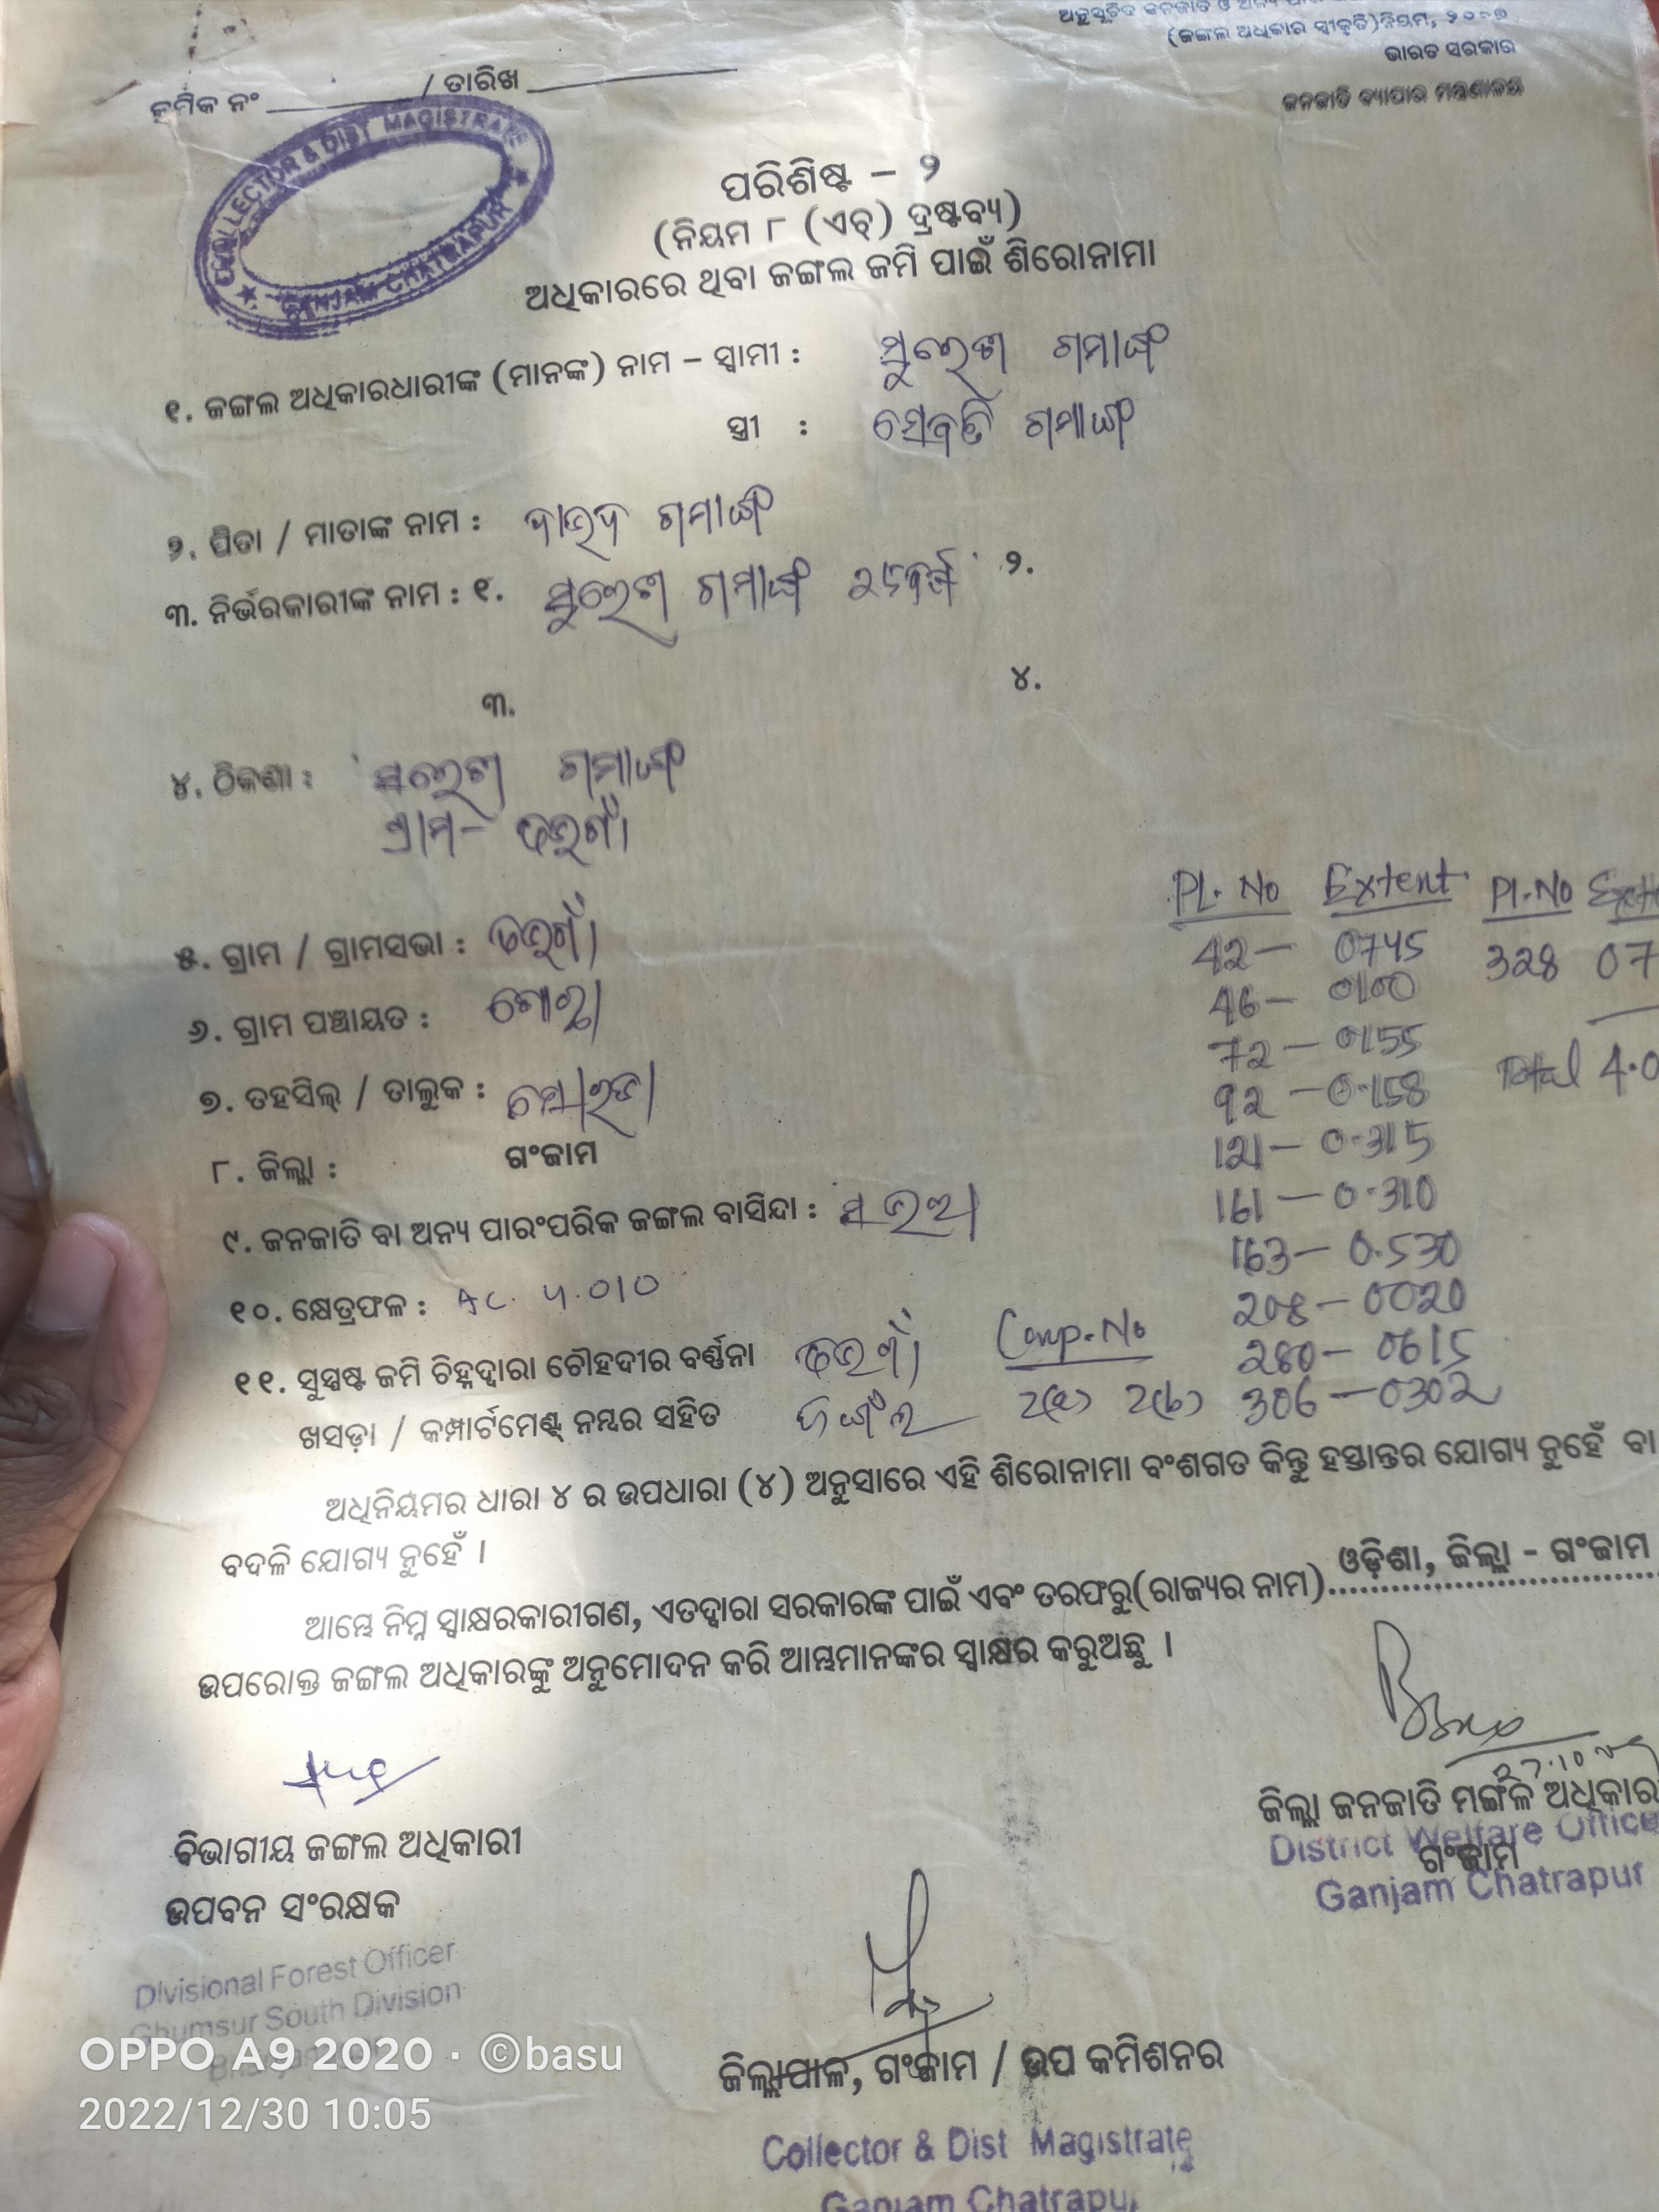 (ଜଙ୍ଗଲ ଅଧିକାର ସ୍ୱୀକୃତି)ନିୟମ, ୨୦୦୭
ଭାରତ ସରକାର
ଜନଜାତି ବ୍ୟାପାର ମନ୍ତ୍ରଣାଳୟ
କ୍ରମିକ ନଂ / ତାରିଖ
COLLECTOR & DIST MAGISTRATE
GANJAM CHATRAPUR
ପରିଶିଷ୍ଟ – ୨
(ନିୟମ ୮ (ଏଚ୍) ଦ୍ରଷ୍ଟବ୍ୟ)
ଅଧିକାରରେ ଥିବା ଜଙ୍ଗଲ ଜମି ପାଇଁ ଶିରୋନାମା
୧. ଜଙ୍ଗଲ ଅଧିକାରଧାରୀଙ୍କ (ମାନଙ୍କ) ନାମ – ସ୍ୱାମୀ : ସୁରେଶ ଗମାଙ୍ଗ
ସ୍ତ୍ରୀ : ସେବତି ଗମାଙ୍ଗ
୨. ପିତା / ମାତାଙ୍କ ନାମ : ଦାଉଦ ଗମାଙ୍ଗ
୩. ନିର୍ଭରକାରୀଙ୍କ ନାମ : ୧. ସୁରେଶ ଗମାଙ୍ଗ ୨.
୩. ୪.
୪. ଠିକଣା : ସୁରେଶ ଗମାଙ୍ଗ
ଗ୍ରାମ–
Pl. No Extent Pl. No
୫. ଗ୍ରାମ / ଗ୍ରାମସଭା :
42 – 0745 328 07
46 – 0100
୬. ଗ୍ରାମ ପଞ୍ଚାୟତ :
72 – 0155
Total 4.0
92 – 0.158
୭. ତହସିଲ୍ / ତାଲୁକ :
121 – 0.315
୮. ଜିଲ୍ଲା : ଗଂଜାମ
161 – 0.310
୯. ଜନଜାତି ବା ଅନ୍ୟ ପାରଂପରିକ ଜଙ୍ଗଲ ବାସିନ୍ଦା : ସଉରା
163 – 0.530
208 – 0020
୧୦. କ୍ଷେତ୍ରଫଳ : AC. 4.010
280 – 0615
୧୧. ସୁସ୍ପଷ୍ଟ ଜମି ଚିହ୍ନଦ୍ୱାରା ଚୌହଦୀର ବର୍ଣ୍ଣନା Comp. No
306 – 0302
ଖସଡ଼ା / କମ୍ପାର୍ଟମେଣ୍ଟ୍ ନମ୍ବର ସହିତ ଜଙ୍ଗଲ 2(a) 2(b)
ଅଧିନିୟମର ଧାରା ୪ ର ଉପଧାରା (୪) ଅନୁସାରେ ଏହି ଶିରୋନାମା ବଂଶଗତ କିନ୍ତୁ ହସ୍ତାନ୍ତର ଯୋଗ୍ୟ ନୁହେଁ ବା
ବଦଳି ଯୋଗ୍ୟ ନୁହେଁ ।
ଆମ୍ଭେ ନିମ୍ନ ସ୍ୱାକ୍ଷରକାରୀଗଣ, ଏତଦ୍ଦ୍ୱାରା ସରକାରଙ୍କ ପାଇଁ ଏବଂ ତରଫରୁ(ରାଜ୍ୟର ନାମ)ଓଡ଼ିଶା, ଜିଲ୍ଲା - ଗଂଜାମ
ଉପରୋକ୍ତ ଜଙ୍ଗଲ ଅଧିକାରଙ୍କୁ ଅନୁମୋଦନ କରି ଆମ୍ଭମାନଙ୍କର ସ୍ୱାକ୍ଷର କରୁଅଛୁ ।
ଜିଲ୍ଲା ଜନଜାତି ମଙ୍ଗଳ ଅଧିକାର
District Welfare Office
ଗଂଜାମ
Ganjam Chatrapur
ବିଭାଗୀୟ ଜଙ୍ଗଲ ଅଧିକାରୀ
ଉପବନ ସଂରକ୍ଷକ
Divisional Forest Officer
Ghumsur South Division
ଜିଲ୍ଲାପାଳ, ଗଂଜାମ / ଉପ କମିଶନର
Collector & Dist Magistrate
Ganjam Chatrapur
OPPO A9 2020 · ©basu
2022/12/30 10:05